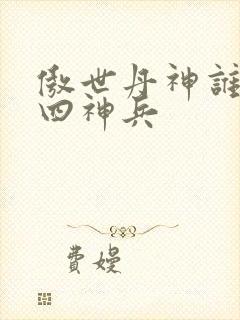 傲世丹神誰
四神兵
費嫚